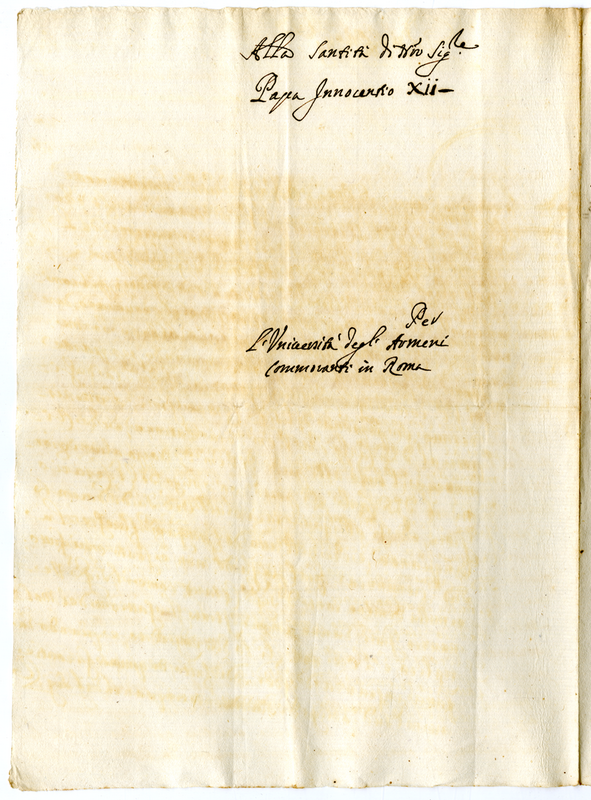 Alla Santità di Nro Sig.re
Papa Innocentio XII
Per
l'Università degl'Armeni
commoranti in Roma